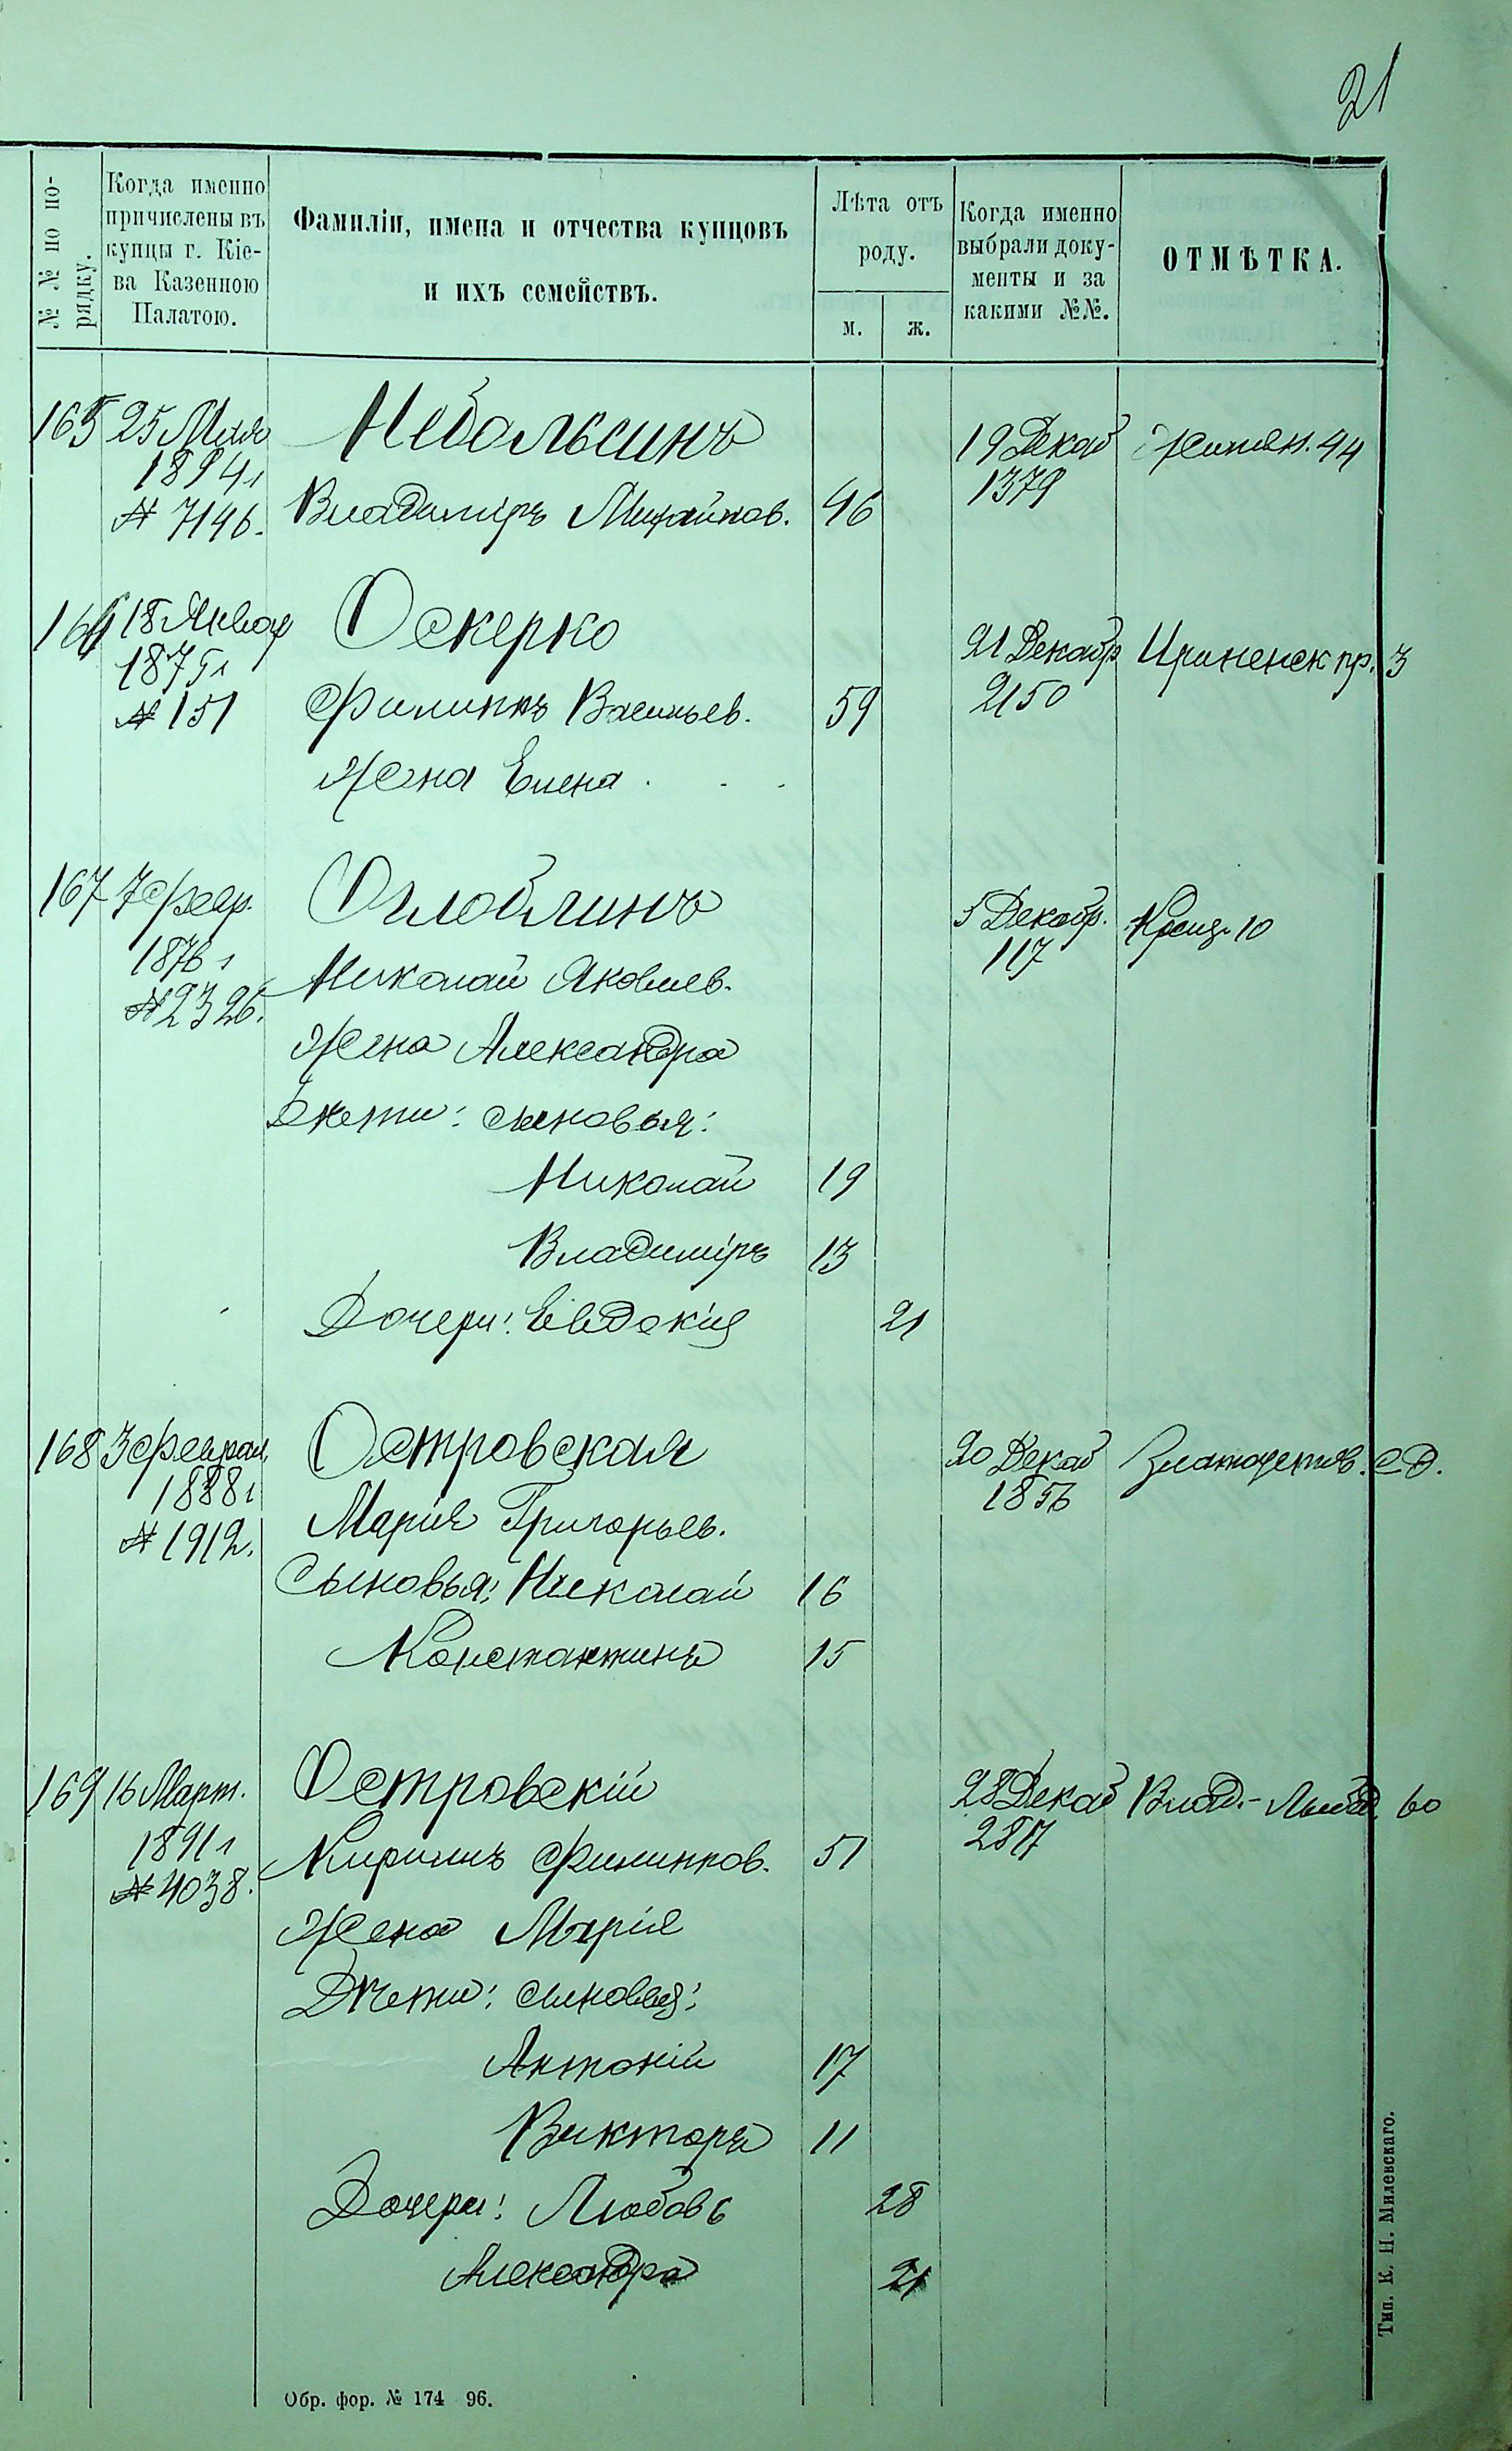 21
№№ по по-
рядку.
Когда именно
причислены въ
купцы г. Кіе-
ва Казенною
Палатою.
Фамиліи, имена и отчества купцовъ
и ихъ семействъ.
Лѣта отъ
роду.
м. ж.
Когда именно
выбрали доку-
менты и за
какими №№.
ОТМѢТКА.
165 25 Мая Небольсинъ 19 Декаб
1894 г 1379
№ 7146. Владиміръ Михайлов. 46
166 18 Январ Оскерко 21 Декабр Ириненск пр. 3
1875 г 2150
№ 151 Филиппъ Васильев. 59
Жена Елена
167 7 февр. Оглоблинъ 5 Декабр. Крещ. 10
1876 г 117
№ 2326. Николай Яковлев.
Жена Александра
Дѣти: сыновья:
Николай 19
Владиміръ 13
Дочери: Евдокія 21
168 3 феврал. Островская 20 Декаб Златоустов. с д.
1888 г 1856
№ 1912. Марія Григорьев.
Сыновья: Николай 16
Константинъ 15
169 16 Март. Островскій 28 Декаб Влад.-Лыбед. 60
1891 г 2817
№ 4038. Кириллъ Филиппов. 51
Жена Марія
Дѣти: сыновья:
Антоній 17
Викторъ 11
Дочери: Любовь 28
Александра 21
Обр. фор. № 174 96.
Тип. К. Н. Милевскаго.